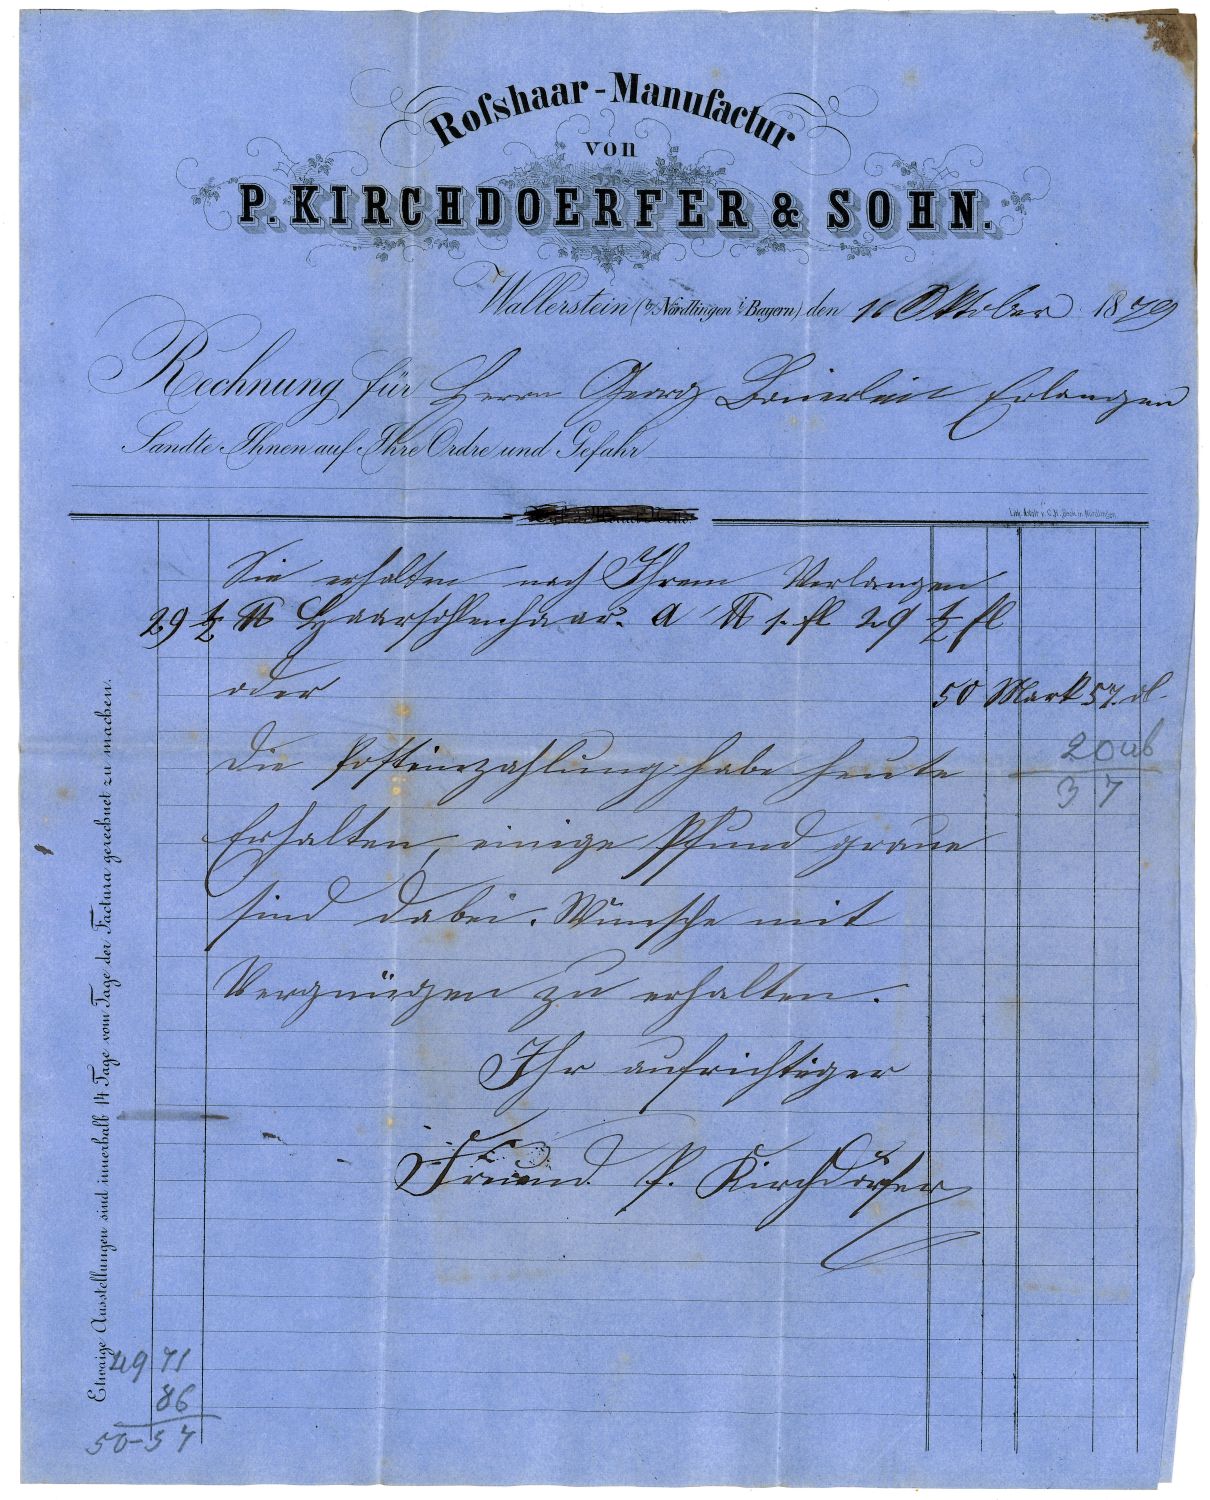 Roſshaar-Manufactur
von
P. KIRCHDOERFER & SOHN.
Wallerstein (b/Nördlingen i/Bayern) den 16 Oktober 1879
Rechnung für Herrn Georg Erlangen
Sandte Ihnen auf Ihre Ordre und Gefahr
Lith. Anstalt v. C. H. Beck in Nördlingen
Sie erhalten nach Ihrem Verlangen
29 1/2 ℔ Haarsohlenhaar. a ℔ 1. fl 29 1/2 fl
oder 50 Mark 57. ₰.
20
die Posteinzahlung habe heute
37
Erhalten, einige Pfund graue
sind dabei. Wünsche mit
Vergnügen zu erhalten.
Ihr aufrichtiger
Freund P. Kirchdörfer
Etwaige Ausstellungen sind innerhalb 14 Tage vom Tage der Factura gerechnet zu machen.
49 71
86
50-57